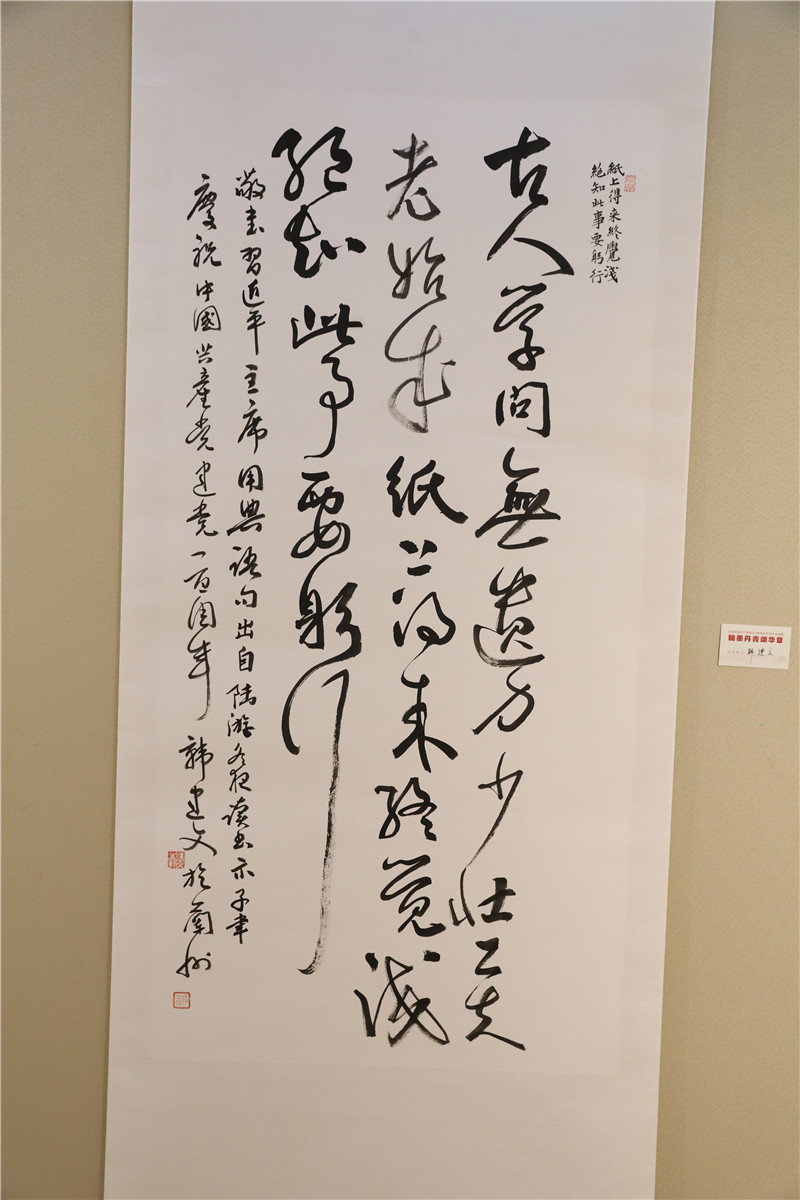 紙上得来終覺淺
絶知此事要躬行
古人学问無遺力少壮工夫
老始成紙上得来終覚浅
絶知此事要躬行
敬書習近平主席用典語句出自陆游冬夜读书示子聿
慶祝中國共產党建党一百周年 韩建文於蘭州
翰墨丹青颂华章
韩建文